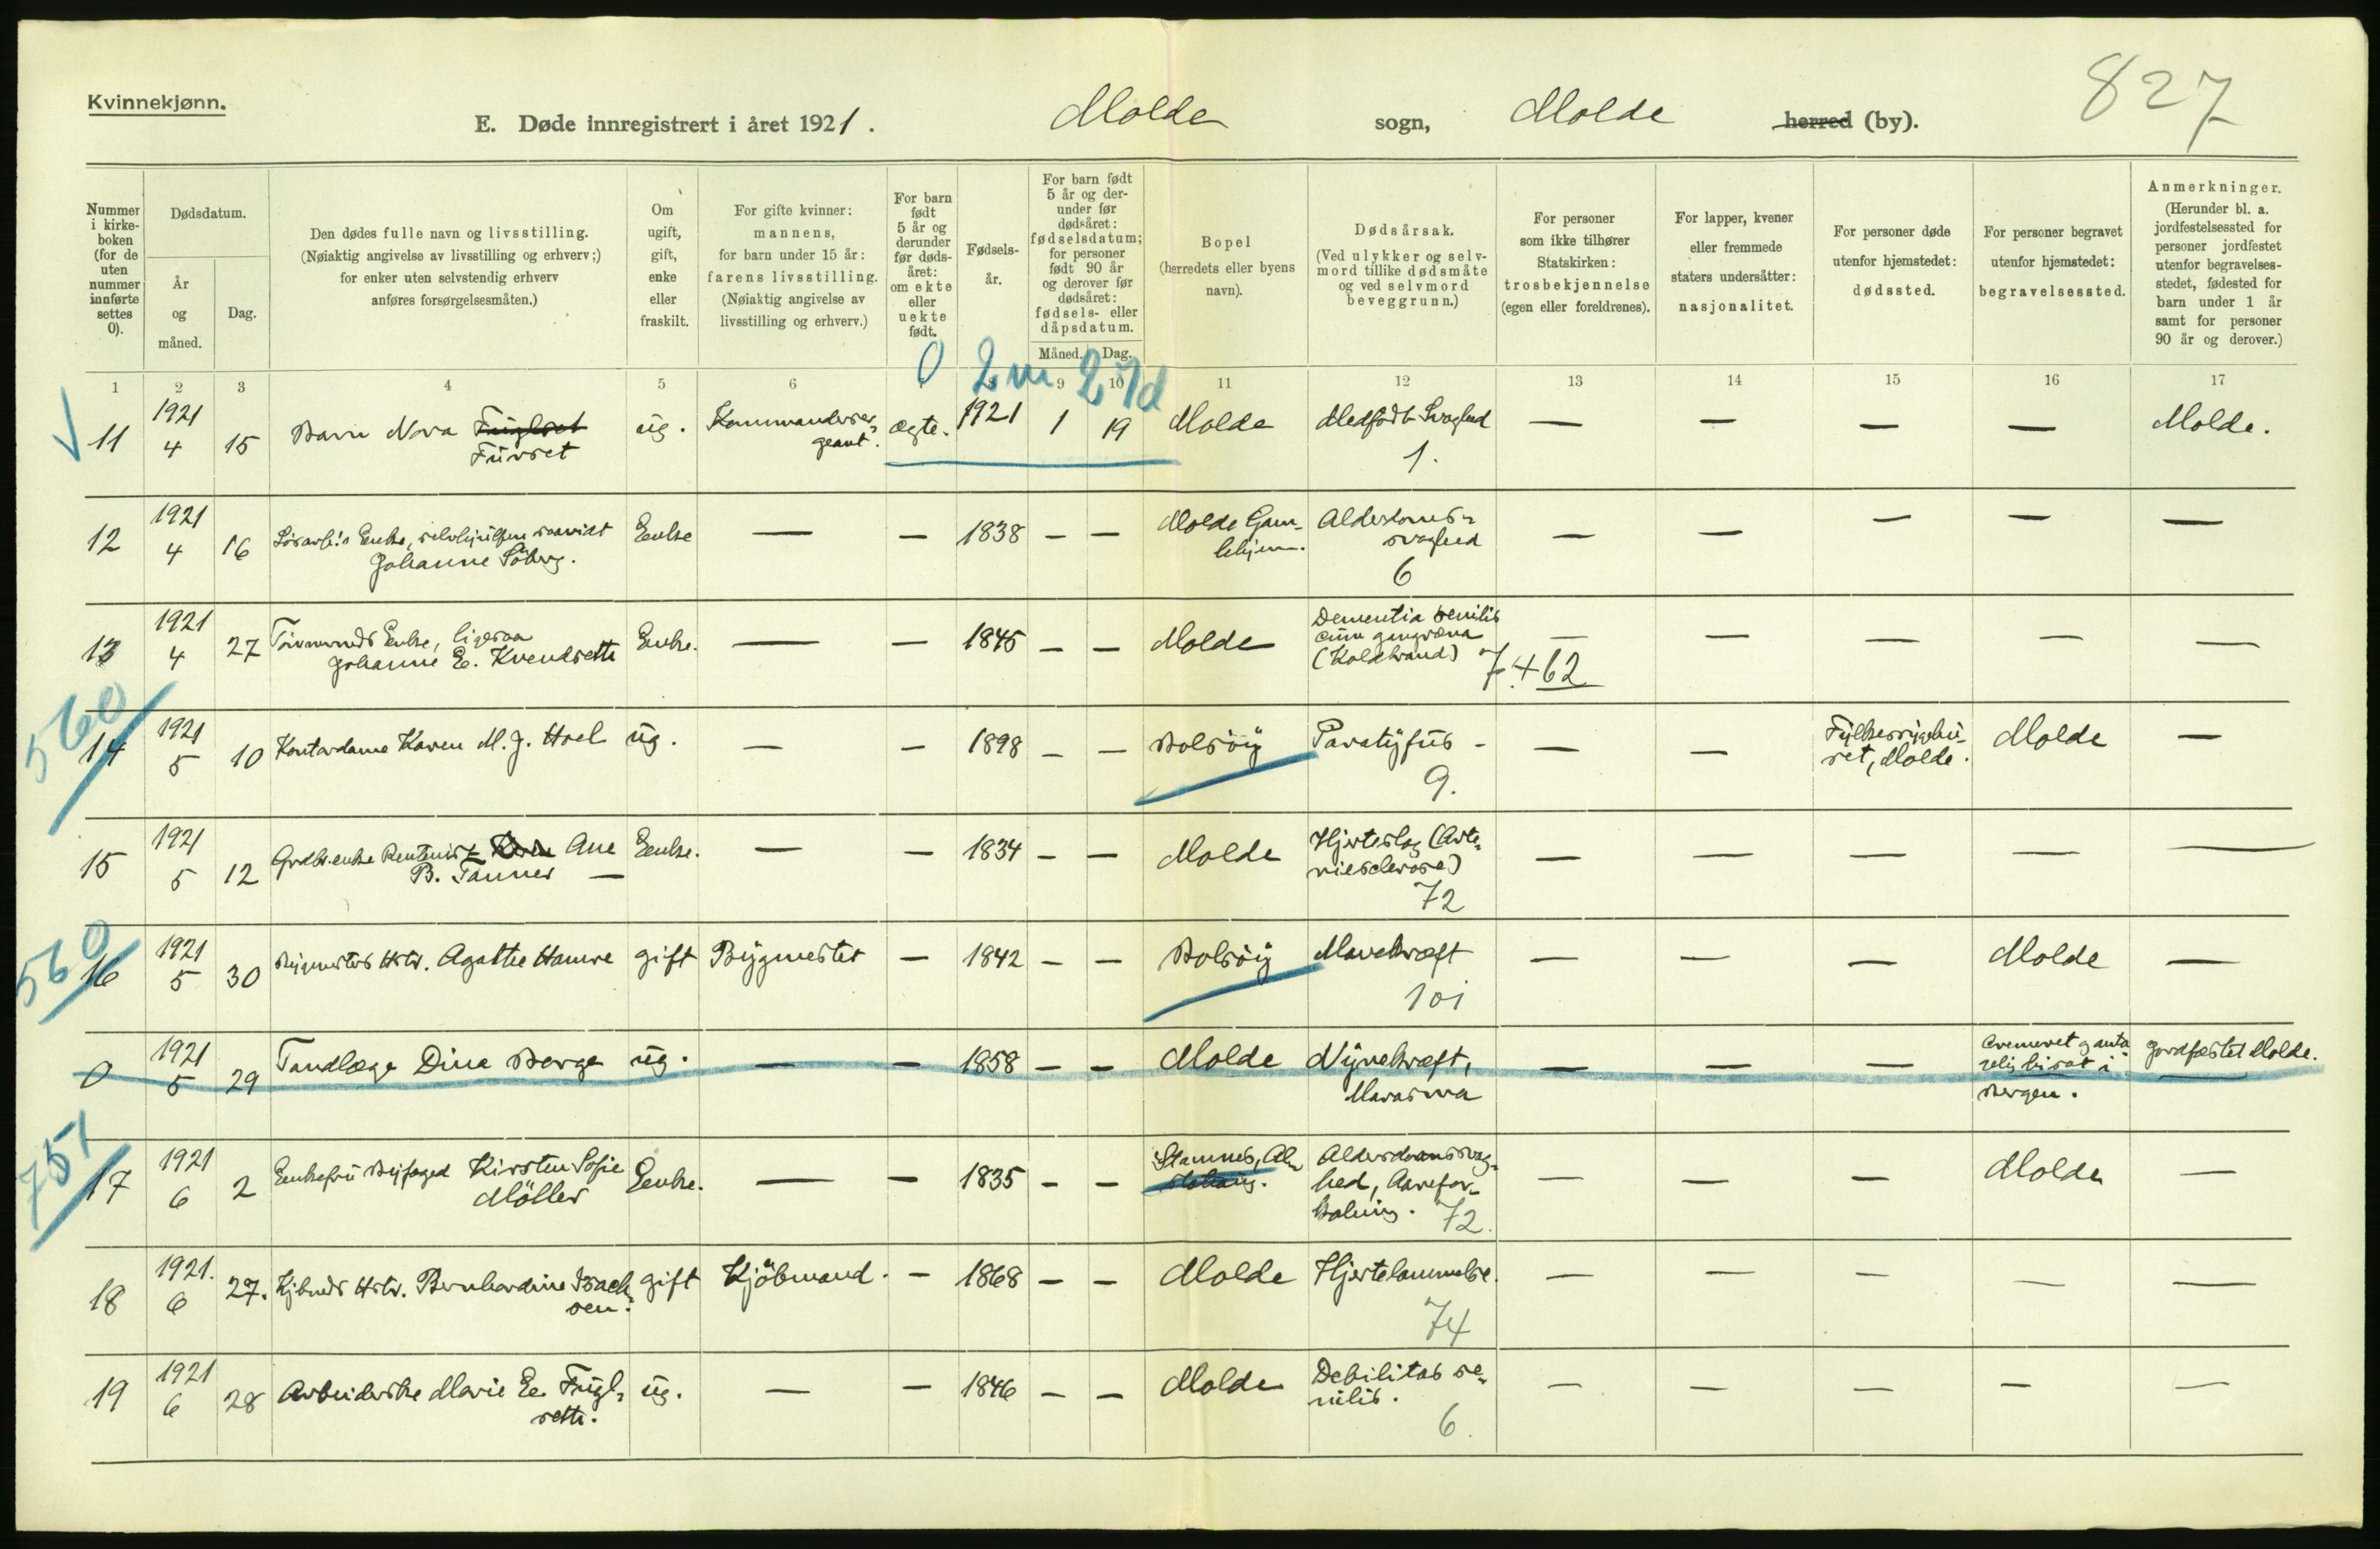 Kvinnekjønn.
827
E. Døde innregistrert i året 1921. Molde sogn, Molde herred (by).
Nummer i kirke-boken (for de uten nummer innførte settes 0).
Dødsdatum.
År og måned.
Dag.
Den dødes fulle navn og livsstilling.
(Nøiaktig angivelse av livsstilling og erhverv;)
for enker uten selvstendig erhverv
anføres forsørgelsesmåten.)
Om ugift, gift, enke eller fraskilt.
For gifte kvinner:
mannens,
for barn under 15 år:
farens livsstilling.
(Nøiaktig angivelse av
livsstilling og erhverv.)
For barn født 5 år og derunder før døds-året: om ekte eller uekte født.
Fødsels-år.
For barn født 5 år og der-under før dødsåret: fødselsdatum; for personer født 90 år og derover før dødsåret: fødsels- eller dåpsdatum.
Måned. Dag.
Bopel
(herredets eller byens
navn).
Dødsårsak.
(Ved ulykker og selv-
mord tillike dødsmåte
og ved selvmord
beveggrunn.)
For personer
som ikke tilhører
Statskirken:
trosbekjennelse
(egen eller foreldrenes).
For lapper, kvener
eller fremmede
staters undersåtter:
nasjonalitet.
For personer døde
utenfor hjemstedet:
dødssted.
For personer begravet
utenfor hjemstedet:
begravelsessted.
Anmerkninger.
(Herunder bl. a.
jordfestelsessted for
personer jordfestet
utenfor begravelses-
stedet, fødested for
barn under 1 år
samt for personer
90 år og derover.)
0 2 m 27d
1 2 3 4 5 6 7 8 9 10 11 12 13 14 15 16 17
11 1921 4 15 Barn Nora Fuglset Furset ug. Kommandersergeant. ægte. 1921 1 19 Molde Medfødt Svaghed 1. — — — — Molde.
12 1921 4 16 Enke, Johanne Söberg. Enke — — 1838 — — Molde Gamlehjem. Alderdoms-svaghed 6 — — — — —
13 1921 4 27 Tömmermds Enke, ligesaa Johanne E. Kvendsette Enke. — — 1845 — — Molde Dementia senilis cum gangræna (Koldbrand) 7 + 62 — — — — —
560
14 1921 5 10 Kontordame Karen M. J. Hoel ug. — — 1898 — — Bolsöy Paratyfus - 9. — — Fylkessygehuset, Molde. Molde —
15 1921 5 12 Grdbr.enke Rentenist Ane B. Tanner — Enke. — — 1834 — — Molde Hjerteslag (Arteriesclerose) 72 — — — — —
560
16 1921 5 30 Bygmesters Hstr. Agathe Hamre gift Bygmester — 1842 — — Bolsöy Mavekræft 101 — — — Molde —
0 1921 5 29 Tandlæge Dina Berge ug. — — 1858 — — Molde Nyrekræft, Marasma — — — Cremeret g antagelig bisat i Bergen. Jordfæstet Molde.
751
17 1921 6 2 Enkefru Byfoged Kirsten Sofie Möller Enke. — — 1835 — — Stamnes, Alderdomssvaghed, Aareforkalkning. 72. — — — Molde —
18 1921. 6 27. Kjbmds Hstr. Bernhardine Isachsen. gift Kjöbmand. — 1868 — — Molde Hjertelammelse. 74 — — — — —
19 1921 6 28 Arbeiderske Marie E. Fuglsette. ug. — — 1846 — — Molde Debilitas senilis. 6. — — — — —